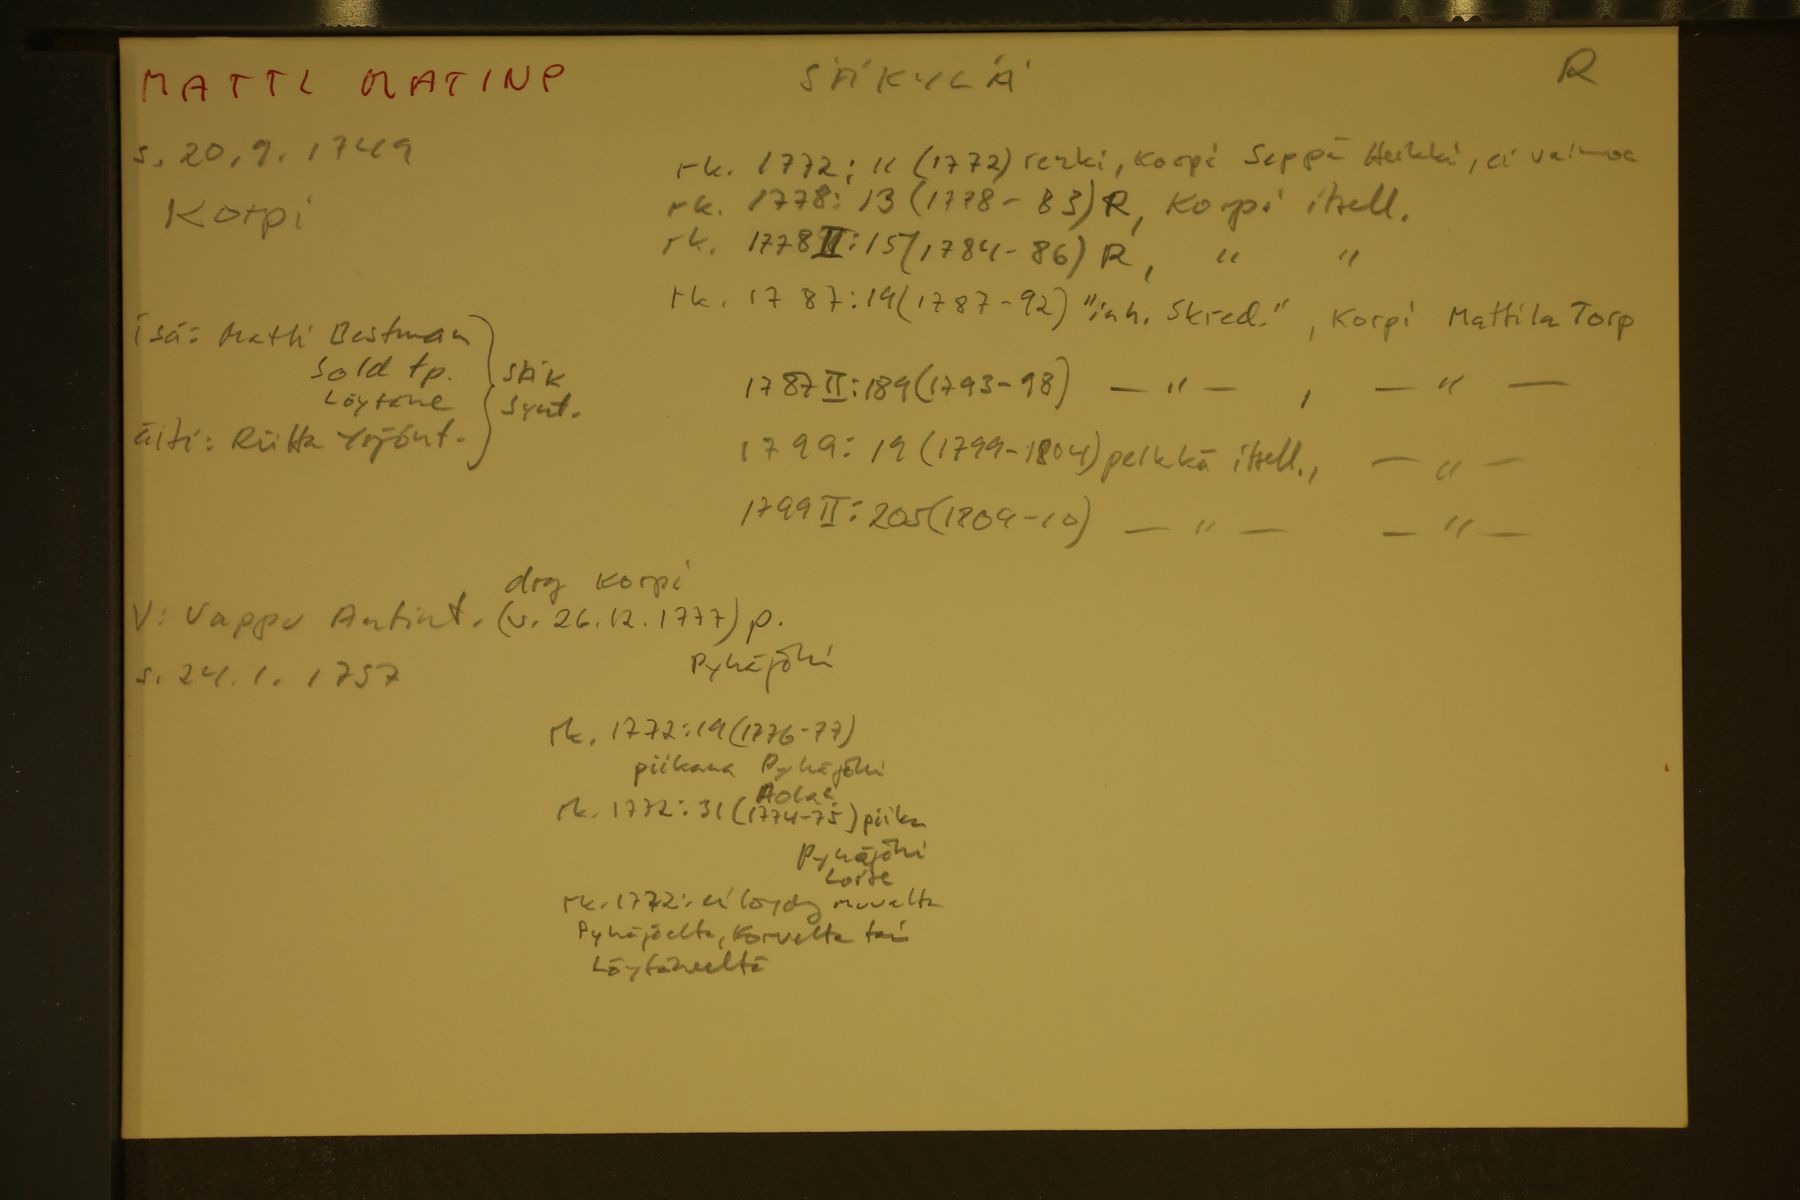 MATTI MATINP SÄKYLÄ R
s. 20.9. 1749
Korpi
rk. 1772: 11 (1772) renki, Korpi Seppä Heikki, ei vaimoa
rk. 1778: 13 (1778-83) R, Korpi itsell.
rk. 1778 II: 15 (1784-86) R, " "
rk. 1787: 19 (1787-92) "inh. Skred.", Korpi Mattila Torp
1787 II: 189 (1793-98) — " — , — " —
1799: 19 (1799-1804) pelkkä itsell., — " —
1799 II: 205 (1809-10) — " — — " —
Isä: Matti Bestman
Sold tp.
Löytäne
äiti: Riitta Yrjönt.
SÄK
Synt.
drg Korpi
V: Vappu Antint. (v. 26.12. 1777) p.
Pyhäjoki
s. 24.1. 1757
rk. 1772: 19 (1776-77)
piikana Pyhäjoki
rk. 1772: 31 (1774-75) piika
Pyhäjoki
rk. 1772: ei löydy muualta
Pyhäjoelta, Korvelta tai
Löytäneeltä